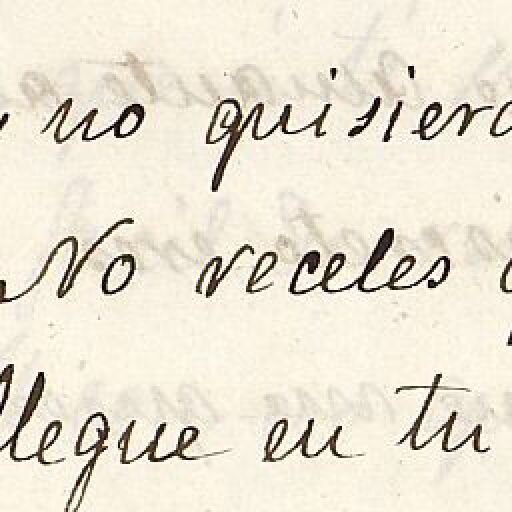 no quisiera
No receles
llegue en tu